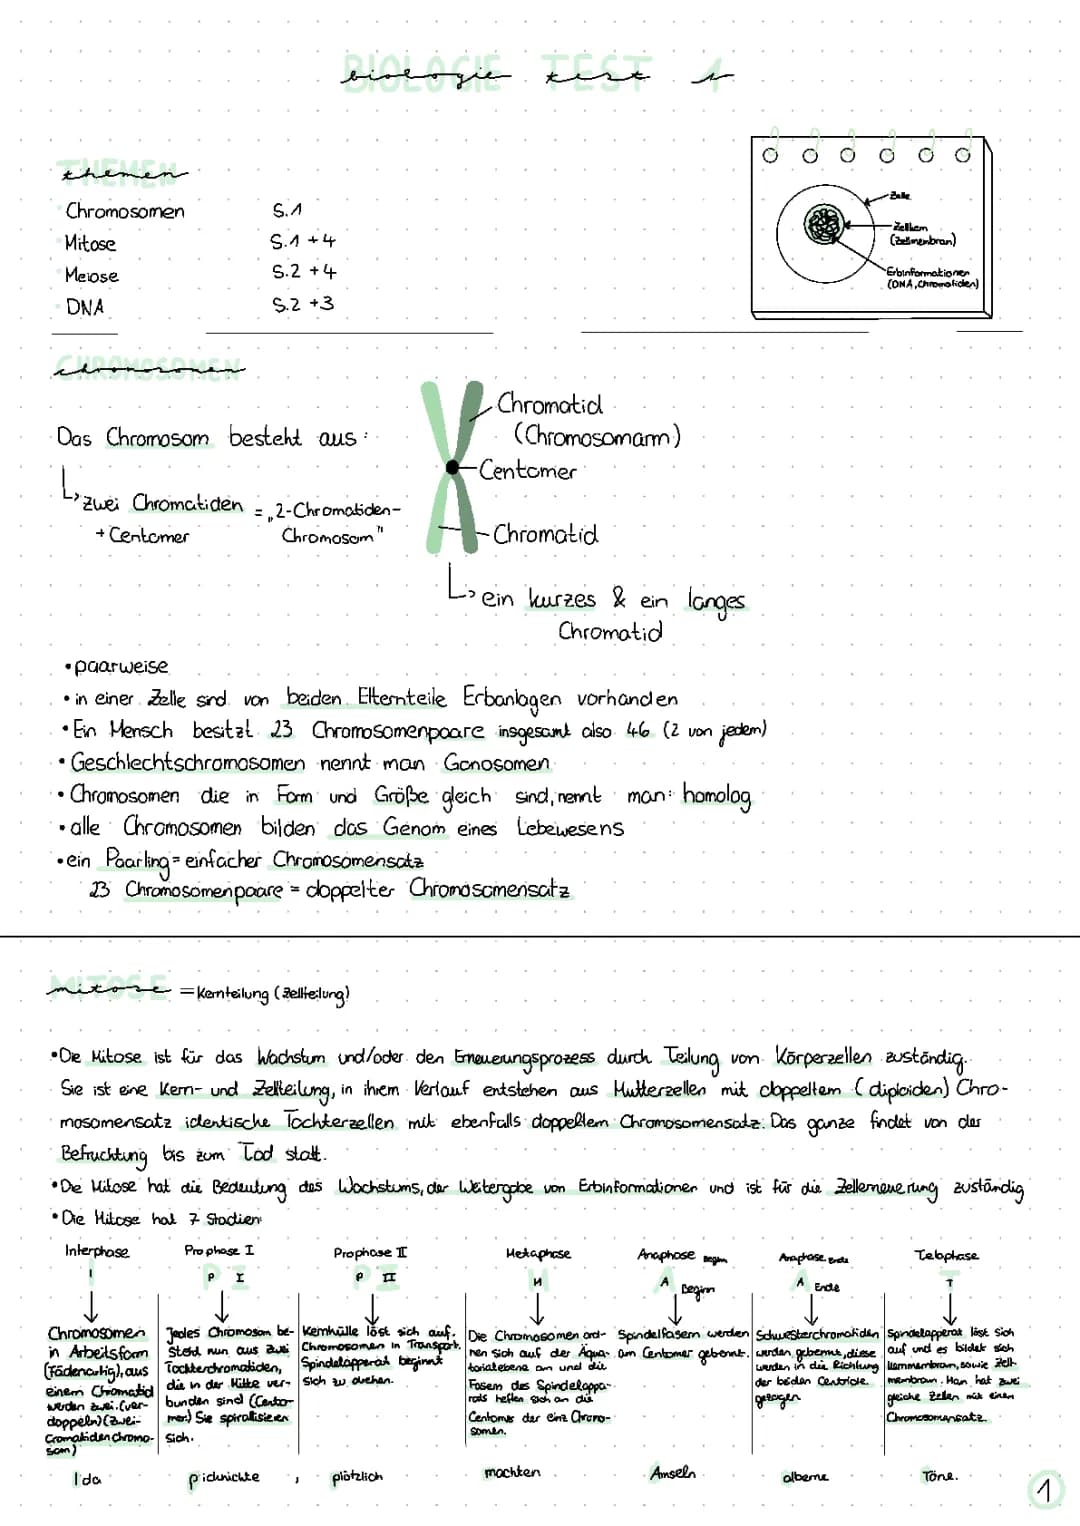 BIOLOGIE TEST 1
THEMEN
Chromosomen S.1
Mitose S.1 +4
Meiose S.2 +4
DNA S.2 +3
Zelle
Zellkern
(Zellmembran)
Erbinformationen
(DNA, Chromatiden)
CHROMOSOMEN
Das Chromosom besteht aus:
zwei Chromatiden = „2-Chromatiden-
+ Centomer Chromosom"
Chromatid
(Chromosomarm)
Centomer
Chromatid
ein kurzes & ein langes
Chromatid
• paarweise
• in einer Zelle sind von beiden Elternteile Erbanlagen vorhanden
• Ein Mensch besitzt 23 Chromosomenpaare insgesamt also 46 (2 von jedem)
• Geschlechtschromosomen nennt man Gonosomen
• Chromosomen die in Form und Größe gleich sind, nennt man: homolog
• alle Chromosomen bilden das Genom eines Lebewesens
• ein Paarling = einfacher Chromosomensatz
23 Chromosomenpaare = doppelter Chromosomensatz
MITOSE = Kernteilung (Zellteilung)
• Die Mitose ist für das Wachstum und/oder den Erneuerungsprozess durch Teilung von Körperzellen zuständig.
Sie ist eine Kern- und Zellteilung, in ihrem Verlauf entstehen aus Mutterzellen mit doppeltem (diploiden) Chro-
mosomensatz identische Tochterzellen mit ebenfalls doppeltem Chromosomensatz. Das ganze findet von der
Befruchtung bis zum Tod statt.
• Die Mitose hat die Bedeutung des Wachstums, der Weitergabe von Erbinformationen und ist für die Zellerneuerung zuständig
• Die Mitose hat 7 Stadien
Interphase
I
Chromosomen
in Arbeitsform
(Fädenartig), aus
einem Chromatid
werden zwei. (ver-
doppeln) (Zwei-
Cromatiden chromo-
som)
Ida
Prophase I
P I
Jedes Chromosom be-
steht nun aus zwei
Tochterchromatiden,
die in der Mitte ver-
bunden sind (Cento-
mer) Sie spiralisieren
sich.
pidunichte ,
Prophase II
P II
Kernhülle löst sich auf.
Chromosomen in Transport.
Spindelapparat beginnt
sich zu drehen.
plötzlich
Metaphase
M
Die Chromosomen ord-
nen sich auf der Äqua-
torialebene an und die
Fasern des Spindelappa-
rats heften sich an die
Centomer der einz Chromo-
somen.
machten
Anaphase Beginn
A Beginn
Spindelfasern werden
am Centomer getrennt.
Amseln
Anaphase Ende
A Ende
Schwesterchromatiden
werden getrennt, diese
werden in die Richtung
der beiden Centriole
gezogen
alberne
Telophase
T
Spindelapperat löst sich
auf und es bildet sich
Kernmembran, sowie Zell-
membran. Man hat zwei
gleiche Zellen mit einem
Chromosomensatz
Töne.
1